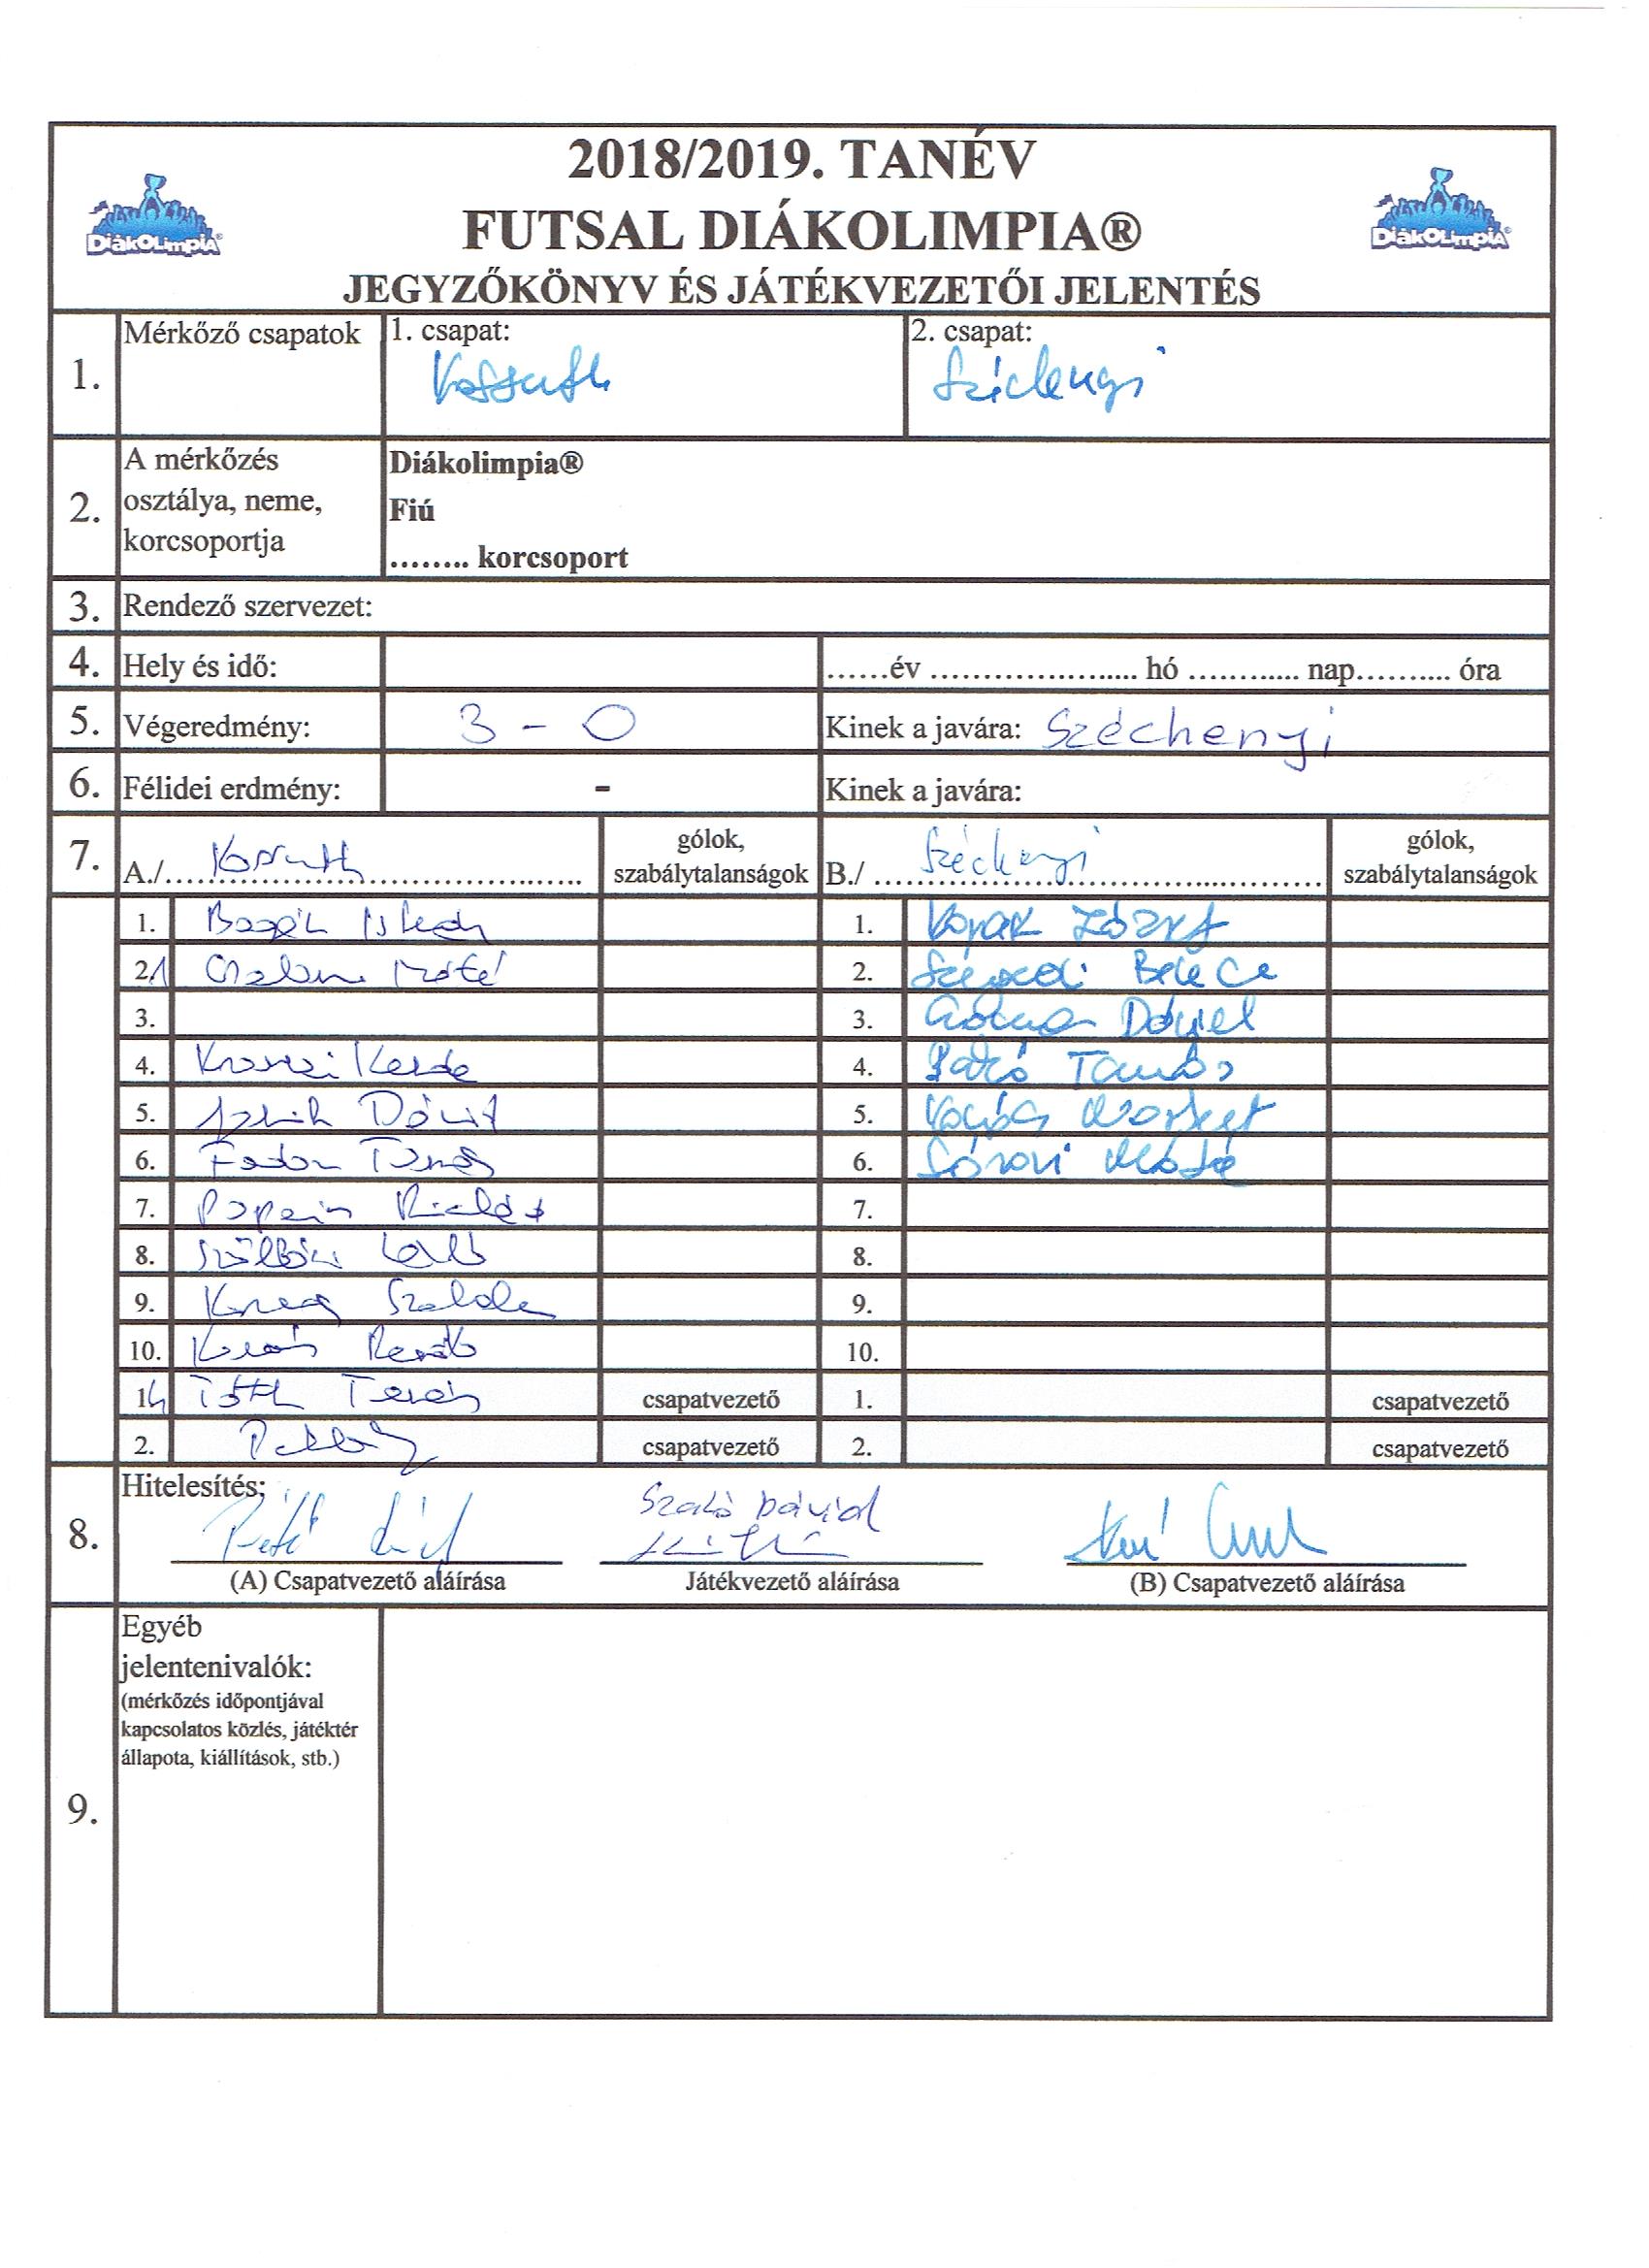 2018/2019. TANÉV
FUTSAL DIÁKOLIMPIA®
JEGYZŐKÖNYV ÉS JÁTÉKVEZETŐI JELENTÉS
DiákOLimpiA® DiákOLimpiA®
1. Mérkőző csapatok 1. csapat: Kossuth 2. csapat: Széchenyi
2. A mérkőzés osztálya, neme, korcsoportja
Diákolimpia®
Fiú
........ korcsoport
3. Rendező szervezet:
4. Hely és idő: ......év ........................ hó .............. nap.......... óra
5. Végeredmény: 3 - 0 Kinek a javára: Széchenyi
6. Félidei erdmény: - Kinek a javára:
7. A./ Kossuth gólok, szabálytalanságok B./ Széchenyi gólok, szabálytalanságok
1. 1. József
2. Máté 2. Szegedi Bence
3. 3. Dániel
4. 4. Pató Tamás
5. Dávid 5. Kovács Norbert
6. Fodor Tamás 6. Sárosi Máté
7. 7.
8. 8.
9. Szabolcs 9.
10. 10.
Tóth Tamás csapatvezető 1. csapatvezető
2. csapatvezető 2. csapatvezető
8. Hitelesítés:
Szabó Dávid
(A) Csapatvezető aláírása Játékvezető aláírása (B) Csapatvezető aláírása
9. Egyéb
jelentenivalók:
(mérkőzés időpontjával
kapcsolatos közlés, játéktér
állapota, kiállítások, stb.)